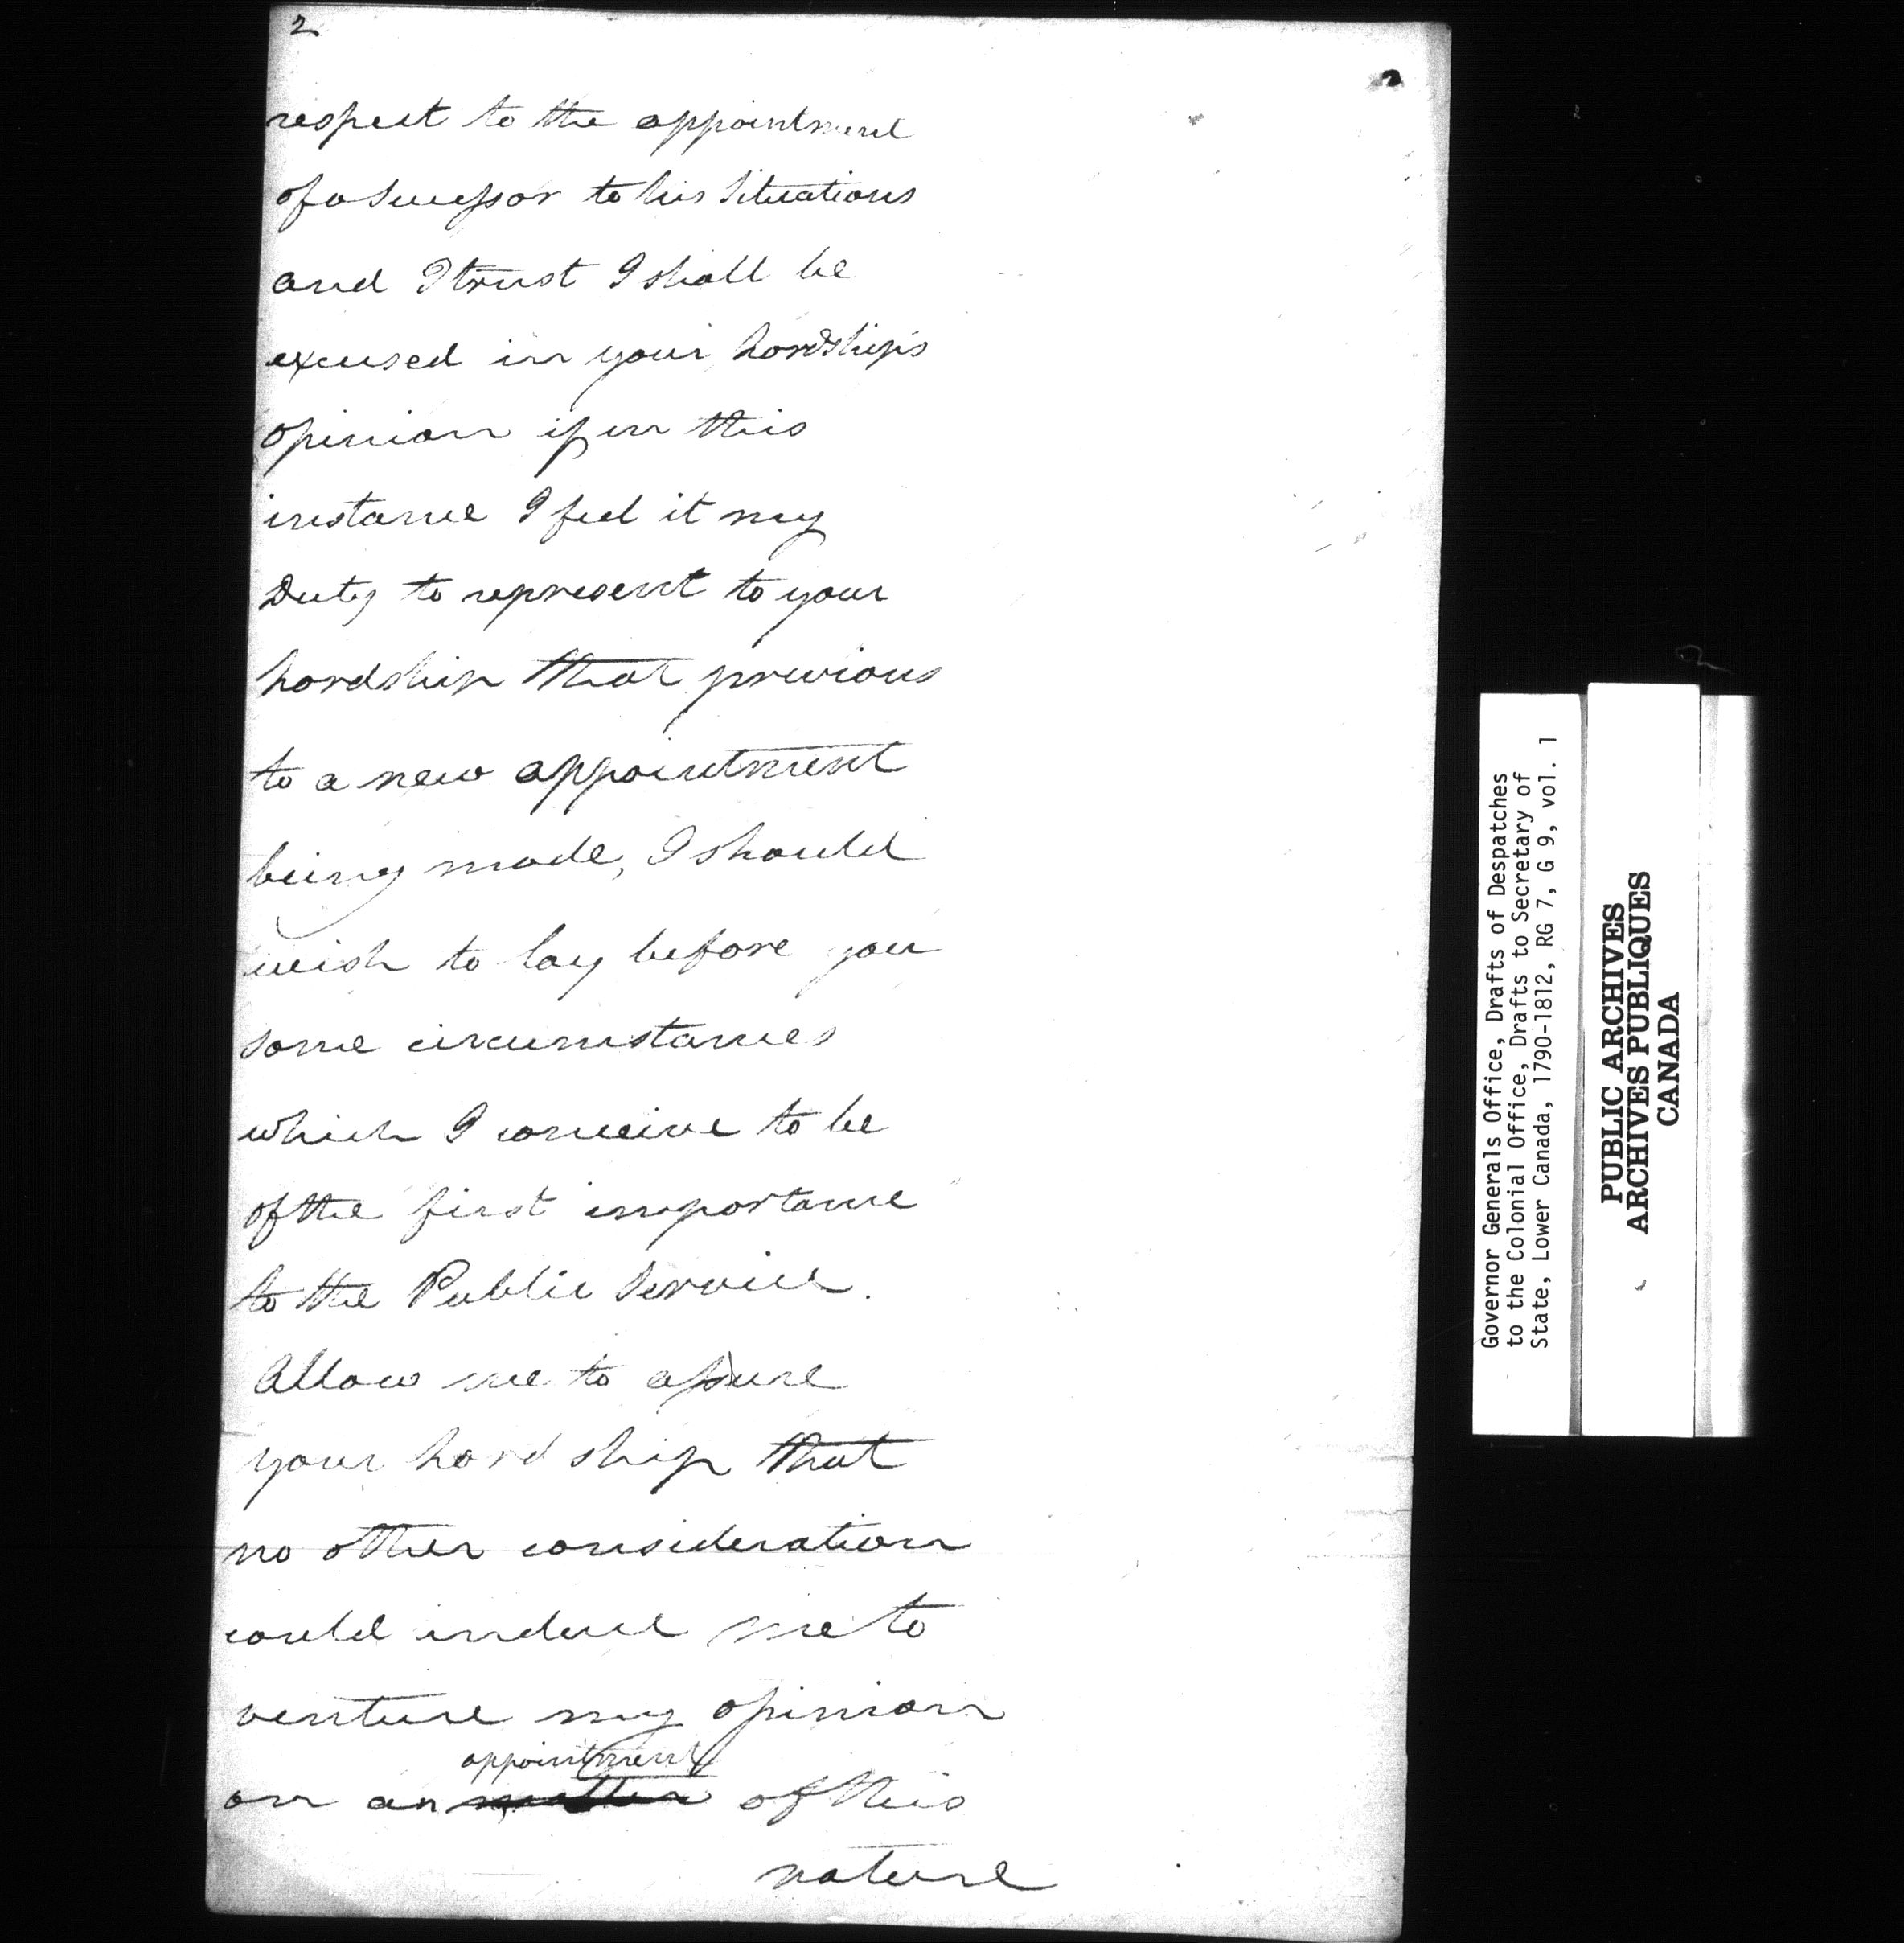 2
2
respect to the appointment
of a Successor to his Situations
and I trust I shall be
excused in your Lordships
opinion if in this
instance I feel it my
Duty to represent to your
Lordship that previous
to a new appointment
being made, I should
wish to lay before you
some circumstances
which I conceive to be
of the first importance
to the Public Service.
Allow me to assure
your Lordship that
no other consideration
could induce me to
venture my opinion
appointment
on an matter of this
nature
Governor Generals Office, Drafts of Despatches
to the Colonial Office, Drafts to Secretary of
State, Lower Canada, 1790-1812, RG 7, G 9, vol. 1
PUBLIC ARCHIVES
ARCHIVES PUBLIQUES
CANADA